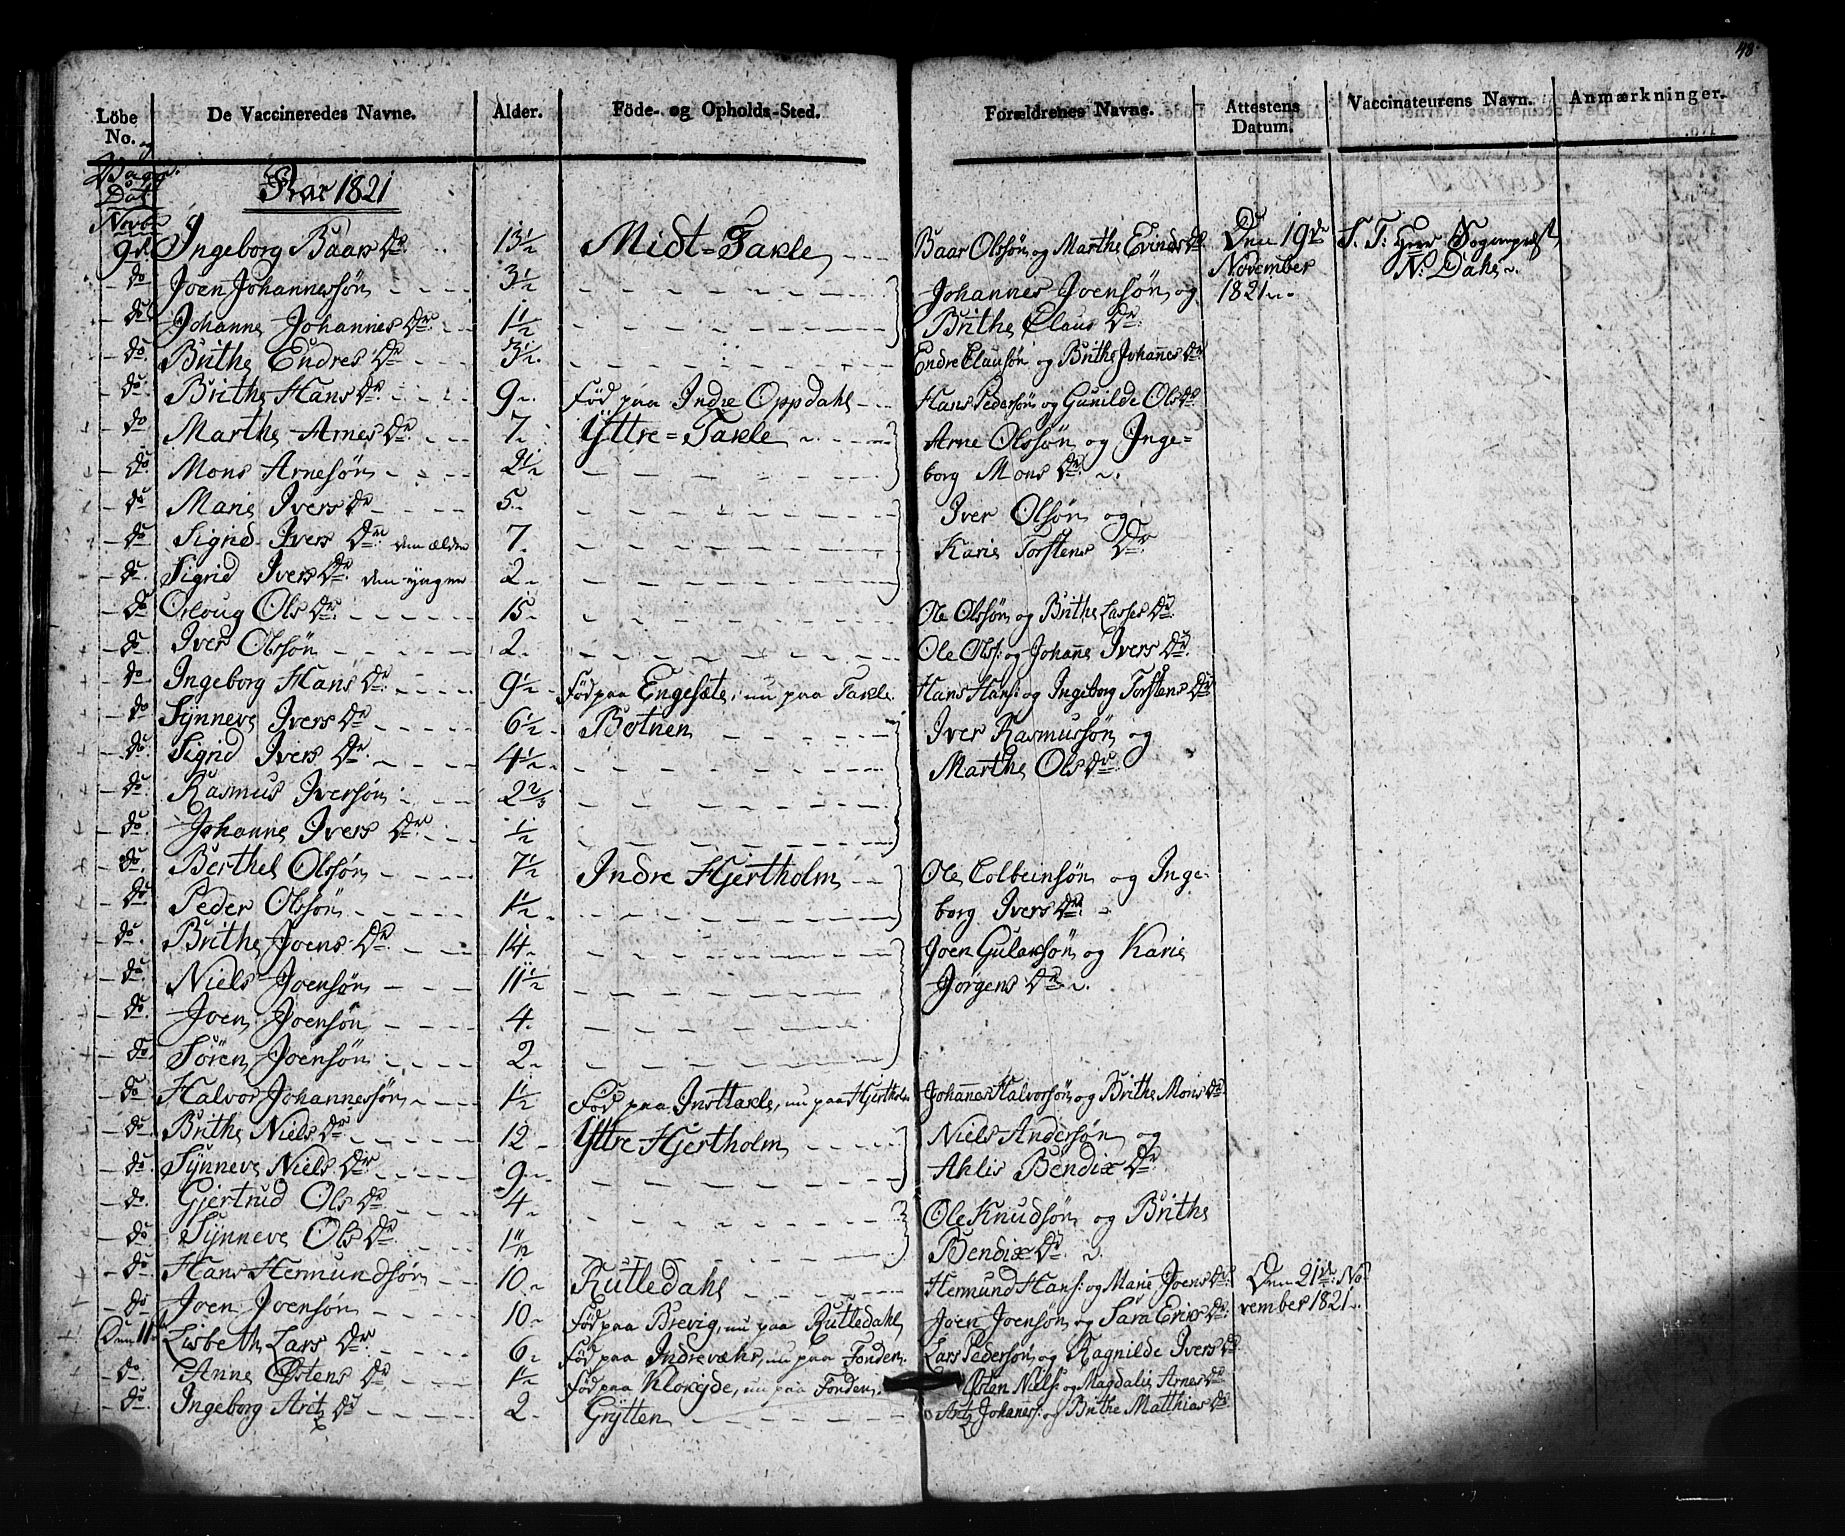 48.
Löbe No. De Vaccineredes Navne. Alder. Föde- og Opholds-Sted. Forældrenes Navne. Attestens Datum. Vaccinateurens Navn. Anmærkninger.
Aar 1821
Novbr
9de Ingeborg Baars Dr. 13½ Midt-Takle Baar Olssön og Marthe Evinds Dr. Den 19de S. T. Herr Sogneprest
do Joen Johannessön 3½ Johannes Joensön og November N: Dahl
do Johanne Johannes Dr. 1½ Brithe Claus Dr. 1821
do Brithe Endres Dr. 3½ Endre Clausön og Brithe Johannes Dr
do Brithe Hans Dr. 9 Föd paa Indre Oppdahl Hans Pedersön og Gunilde Ols Dr
do Marthe Arnes Dr. 7 Yttre-Takle Arne Olssön og Inge-
do Mons Arnesön 2½ borg Mons Dr.
do Marie Ivers Dr 5 Iver Olsön og
do Sigrid Ivers Dr. den ældre 7 Karie Torstens Dr.
do Sigrid Ivers Dr. den yngre 2
do Orloug Ols Dr. 15 Ole Olssön og Brithe Lasses Dr.
do Iver Olssön 2 Ole Olss: og Johanne Ivers Dr.
do Ingeborg Hans Dr. 9½ Föd paa Engesæte, nu paa Takle Hans Hans: og Ingeborg Torstens Dr
do Synneve Ivers Dr 6½ Botnen Iver Rasmussön og
do Sigrid Ivers Dr. 4½ Marthe Ols Dr.
do Rasmus Iversön 2⅔
do Johanne Ivers Dr. ½
do Berthel Olssön 7½ Indre Hjertholm Ole Colbeinsön og Inge-
do Peder Olssön 1½ borg Ivers Dr.
do Brithe Joens Dr. 14 Joen Gulaksön og Karie
do Niels Joensön 11½ Jörgens Dr.
do Joen Joensön 4
do Sören Joensön 2
do Halvor Johannessön 1½ Föd paa Insttakle, nu paa Hjertholm Johannes Halvorsön og Brithe Mons Dr.
do Brithe Niels Dr 12 Yttre Hjertholm Niels Andersön og
do Synneve Niels Dr 9 Ahlis Bendix Dr.
do Gjertrud Ols Dr 4 Ole Knudsön og Brithe
do Synneve Ols Dr. Bendix Dr.
do Hans Hermundsön 10 Rutledahl Hermund Hans: og Marie Joens Dr. Den 21de No-
do Joen Joensön 10 Föd paa Brevig, nu paa Rutledahl Joen Joensön og Sara Erix Dr vember 1821
Den 11te Lisbeth Lars Dr. 6 Föd paa Indrevæhr, nu paa Fonden Lars Pedersön og Ragnilde Ivers Dr
do Anne Östens Dr 1½ Föd paa Klokejde, nu paa Fonden Östen Niels: og Magdalie Arnes Dr
do Ingeborg Aritz Dr 2 Grytten Aritz Johannes: og Brithe Matthias Dr